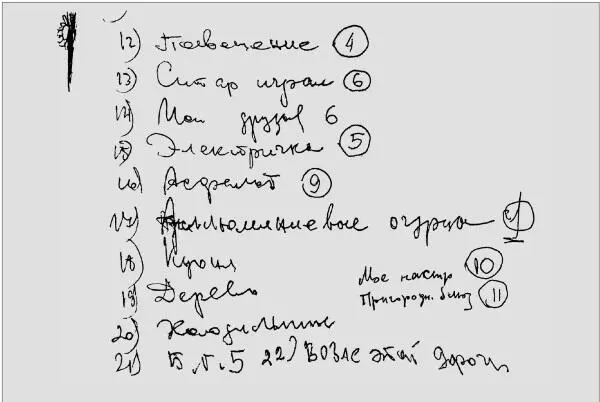 12) Посвещение 4
13) Ситар играл 6
14) Мои друзья 6
15) Электричка 5
16) Асфальт 9
17) Алюминиевые огурцы
18)
Мое настр 10
Пригородн. блюз 11
19) Дерево
20) Холодильник
21) Б.Г. 5 22) Возле этой дороги